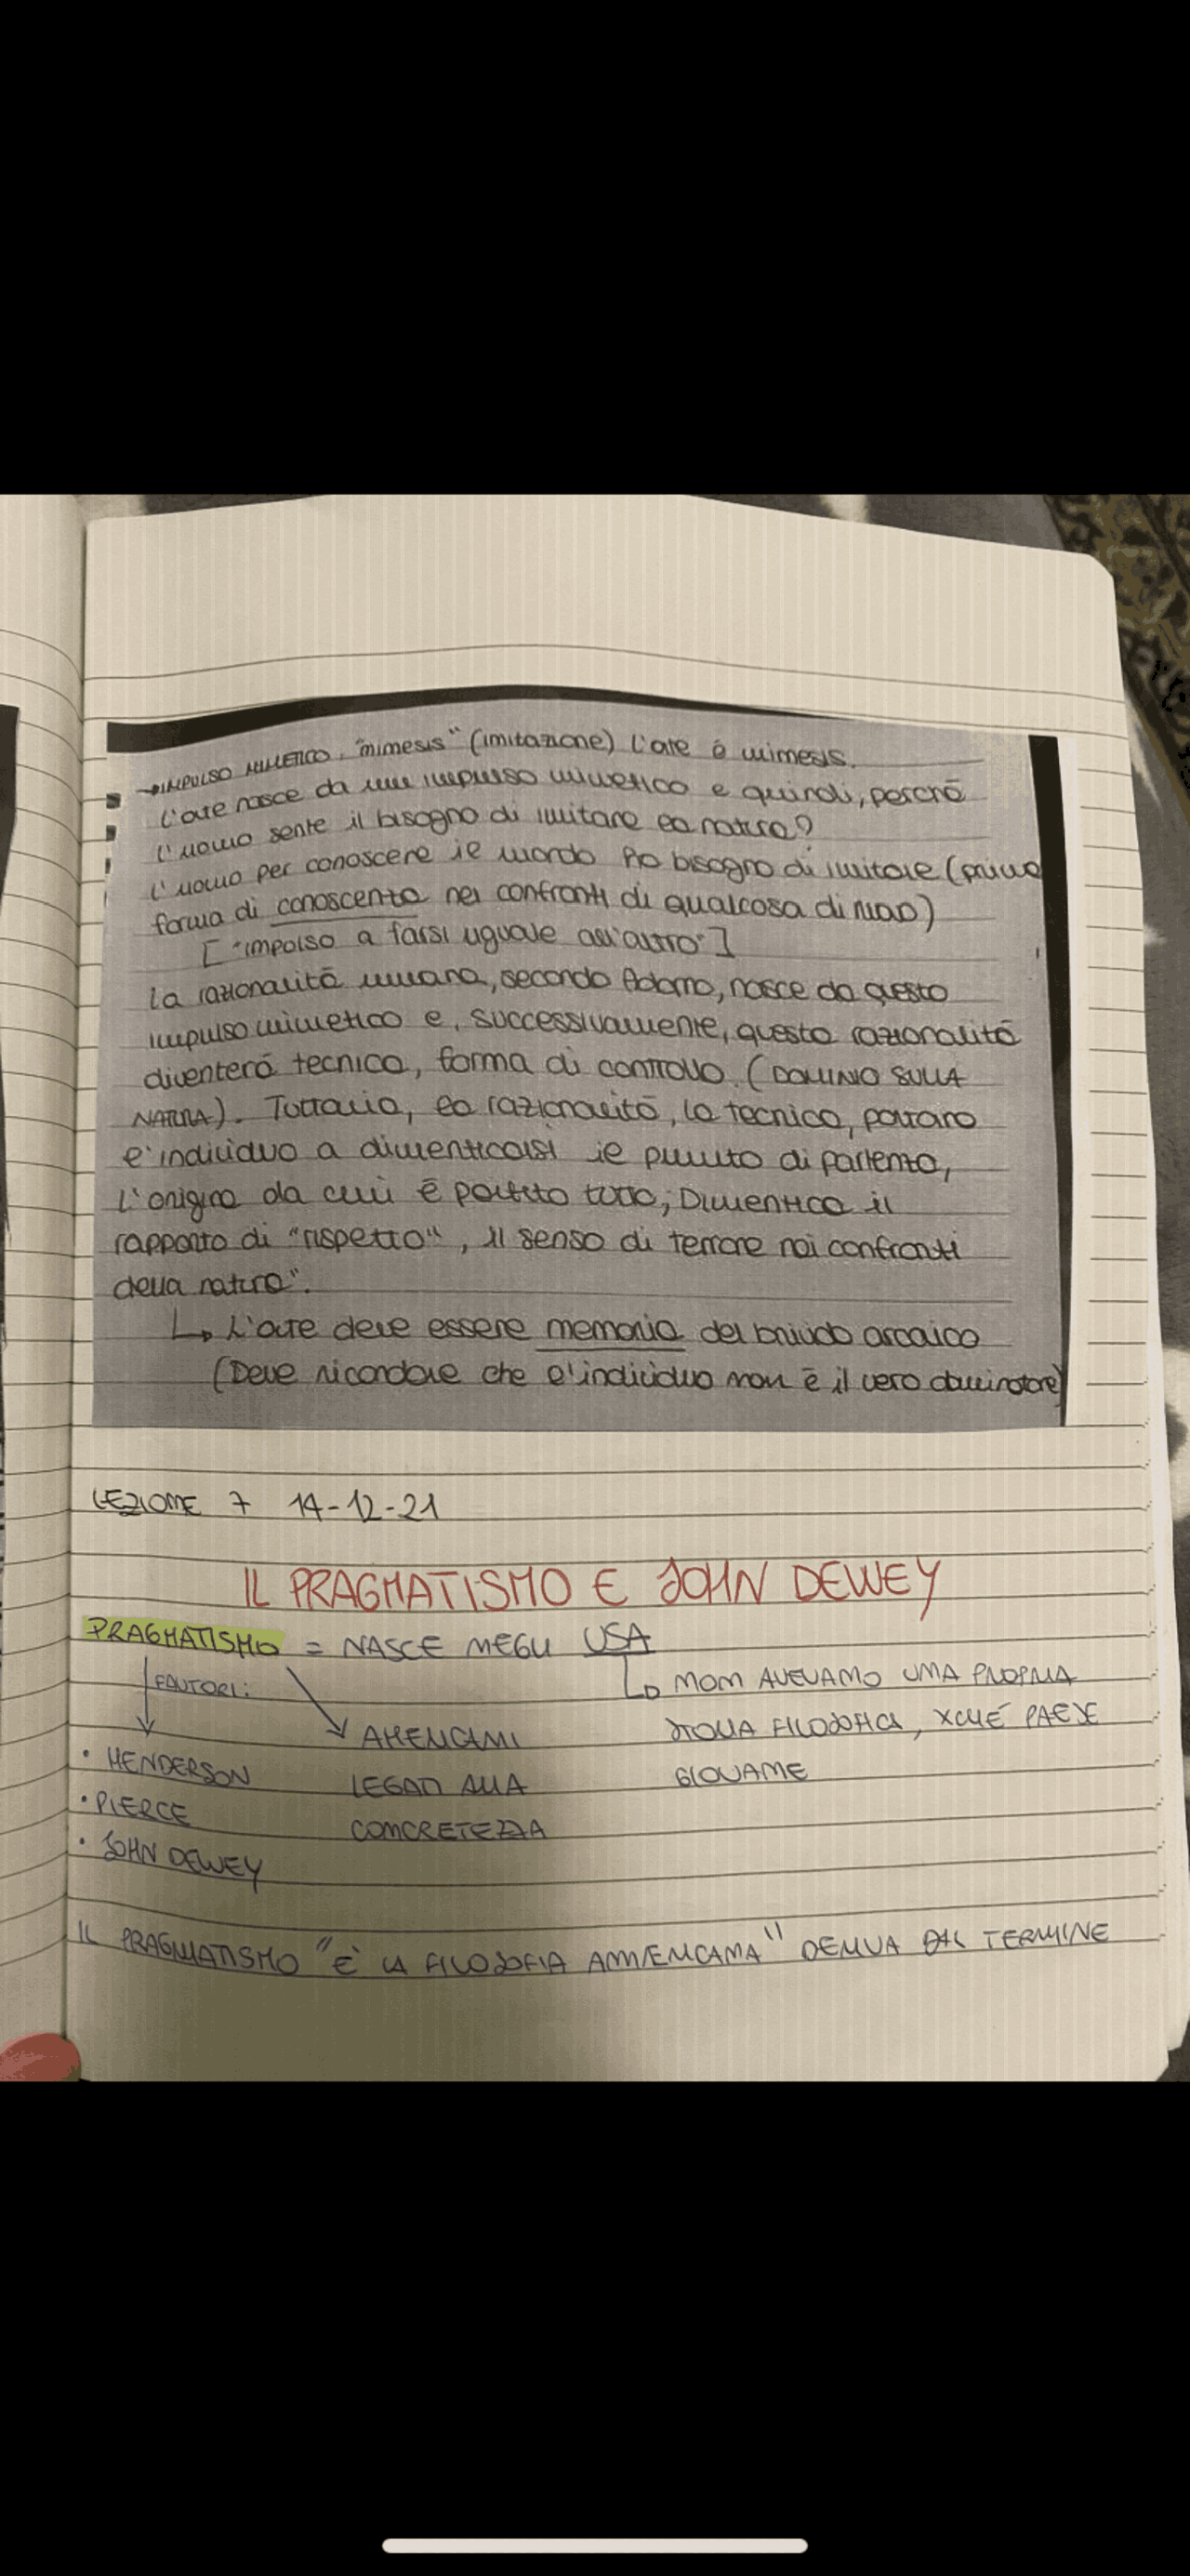 →IMPULSO MIMETICO: "mimesis" (imitazione) l'arte è mimesis.
l'arte nasce da un impulso mimetico e quindi, perché
l'uomo sente il bisogno di imitare la natura?
l'uomo per conoscere il mondo ha bisogno di imitare (prima
forma di conoscenza nei confronti di qualcosa di
["impulso a farsi uguale all'altro"]
la razionalità umana, secondo Adorno, nasce da questo
impulso mimetico e, successivamente, questa razionalità
diventerà tecnica, forma di controllo. (DOMINIO SULLA
NATURA). Tuttavia, la razionalità, la tecnica, portano
l'individuo a dimenticarsi il punto di partenza,
l'origine da cui è partito tutto; Dimentica il
rapporto di "rispetto", il senso di terrore nei confronti
della natura".
↳ L'arte deve essere memoria del brivido arcaico
(Deve ricordare che l'individuo non è il vero dominatore)
LEZIONE 7 14-12-21
IL PRAGMATISMO E JOHN DEWEY
PRAGMATISMO = NASCE NEGLI USA
FAUTORI:
↳ NON AVEVAMO UNA PROPRIA
STORIA FILOSOFICA, XCHÉ PAESE
GIOVANE
AMERICANI
LEGATI ALLA
CONCRETEZZA
• HENDERSON
• PIERCE
• JOHN DEWEY
IL PRAGMATISMO "È LA FILOSOFIA AMERICANA" DERIVA DAL TERMINE